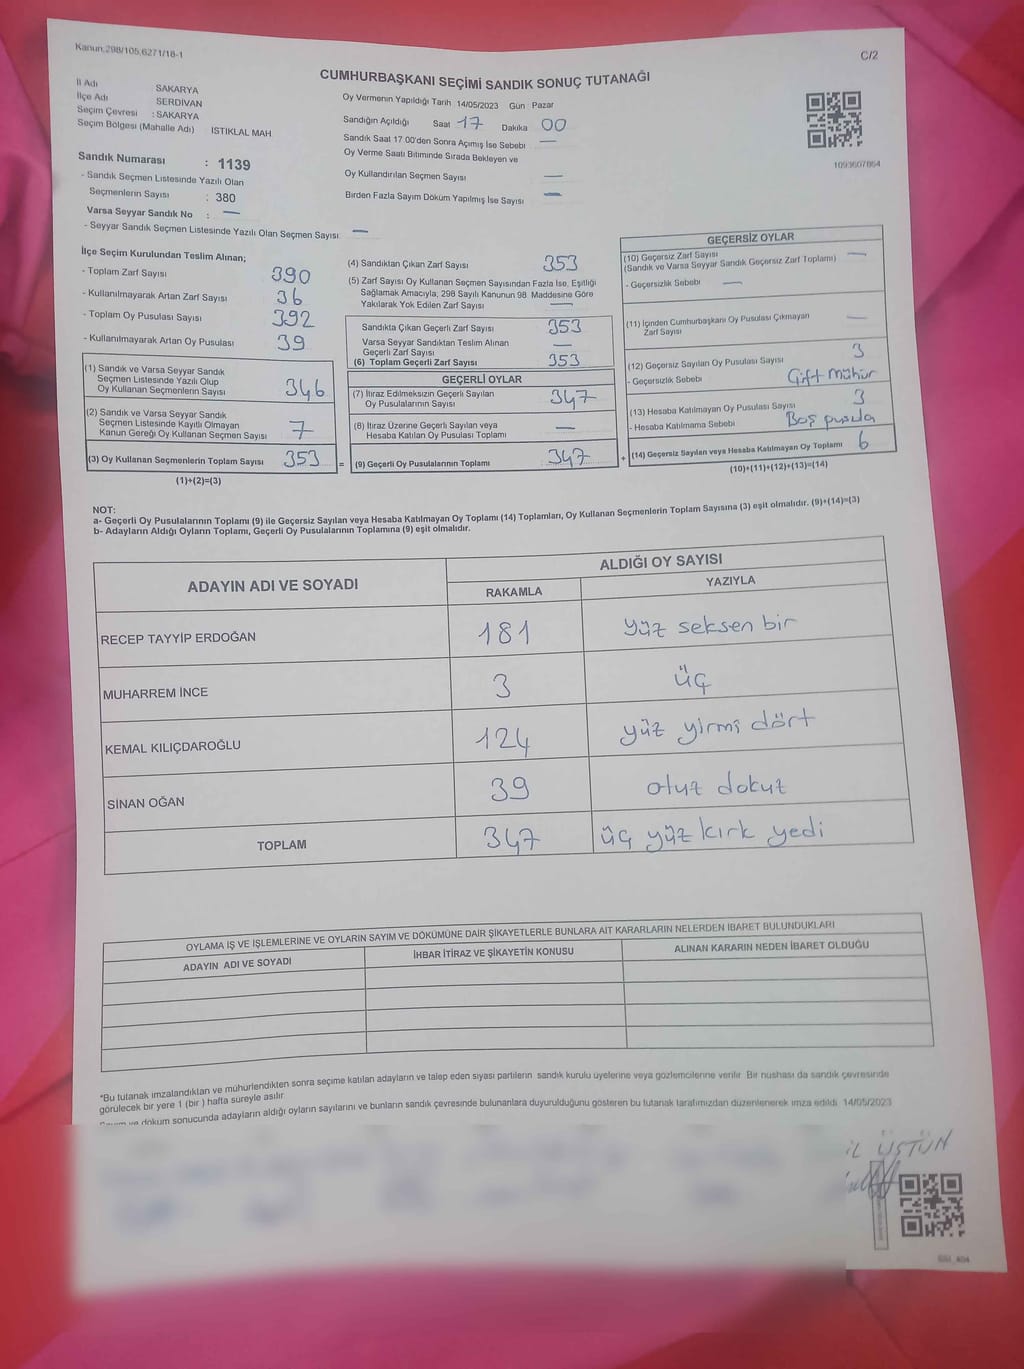 Kanun.298/105,6271/18-1
C/2
CUMHURBAŞKANI SEÇİMİ SANDIK SONUÇ TUTANAĞI
İl Adı SAKARYA
İlçe Adı SERDİVAN
Seçim Çevresi : SAKARYA
Seçim Bölgesi (Mahalle Adı) İSTİKLAL MAH
Oy Vermenin Yapıldığı Tarih 14/05/2023 Gün Pazar
Sandığın Açıldığı Saat 17 Dakika 00
Sandık Saat 17 00'den Sonra Açımış İse Sebebi —
Oy Verme Saati Bitiminde Sırada Bekleyen ve
Oy Kullandırılan Seçmen Sayısı —
Birden Fazla Sayım Döküm Yapılmış İse Sayısı —
1093607864
Sandık Numarası : 1139
- Sandık Seçmen Listesinde Yazılı Olan
Seçmenlerin Sayısı : 380
Varsa Seyyar Sandık No : —
- Seyyar Sandık Seçmen Listesinde Yazılı Olan Seçmen Sayısı —
İlçe Seçim Kurulundan Teslim Alınan;
- Toplam Zarf Sayısı 390
- Kullanılmayarak Artan Zarf Sayısı 36
- Toplam Oy Pusulası Sayısı 392
- Kullanılmayarak Artan Oy Pusulası 39
(1) Sandık ve Varsa Seyyar Sandık
Seçmen Listesinde Yazılı Olup
Oy Kullanan Seçmenlerin Sayısı 346
(2) Sandık ve Varsa Seyyar Sandık
Seçmen Listesinde Kayıtlı Olmayan
Kanun Gereği Oy Kullanan Seçmen Sayısı 7
(3) Oy Kullanan Seçmenlerin Toplam Sayısı 353 =
(1)+(2)=(3)
(4) Sandıktan Çıkan Zarf Sayısı 353
(5) Zarf Sayısı Oy Kullanan Seçmen Sayısından Fazla İse, Eşitliği
Sağlamak Amacıyla, 298 Sayılı Kanunun 98. Maddesine Göre
Yakılarak Yok Edilen Zarf Sayısı —
Sandıkta Çıkan Geçerli Zarf Sayısı 353
Varsa Seyyar Sandıktan Teslim Alınan
Geçerli Zarf Sayısı —
(6) Toplam Geçerli Zarf Sayısı 353
GEÇERLİ OYLAR
(7) İtiraz Edilmeksizin Geçerli Sayılan
Oy Pusulalarının Sayısı 347
(8) İtiraz Üzerine Geçerli Sayılan veya
Hesaba Katılan Oy Pusulası Toplamı —
(9) Geçerli Oy Pusulalarının Toplamı 347 +
GEÇERSİZ OYLAR
(10) Geçersiz Zarf Sayısı —
(Sandık ve Varsa Seyyar Sandık Geçersiz Zarf Toplamı)
- Geçersizlik Sebebi —
(11) İçinden Cumhurbaşkanı Oy Pusulası Çıkmayan
Zarf Sayısı —
(12) Geçersiz Sayılan Oy Pusulası Sayısı 3
- Geçersizlik Sebebi Çift mühür
(13) Hesaba Katılmayan Oy Pusulası Sayısı 3
- Hesaba Katılmama Sebebi Boş pusula
(14) Geçersiz Sayılan veya Hesaba Katılmayan Oy Toplamı 6
(10)+(11)+(12)+(13)=(14)
NOT:
a- Geçerli Oy Pusulalarının Toplamı (9) ile Geçersiz Sayılan veya Hesaba Katılmayan Oy Toplamı (14) Toplamları, Oy Kullanan Seçmenlerin Toplam Sayısına (3) eşit olmalıdır. (9)+(14)=(3)
b- Adayların Aldığı Oyların Toplamı, Geçerli Oy Pusulalarının Toplamına (9) eşit olmalıdır.
ADAYIN ADI VE SOYADI
ALDIĞI OY SAYISI
RAKAMLA YAZIYLA
RECEP TAYYİP ERDOĞAN 181 yüz seksen bir
MUHARREM İNCE 3 üç
KEMAL KILIÇDAROĞLU 124 yüz yirmi dört
SİNAN OĞAN 39 otuz dokuz
TOPLAM 347 üç yüz kırk yedi
OYLAMA İŞ VE İŞLEMLERİNE VE OYLARIN SAYIM VE DÖKÜMÜNE DAİR ŞİKAYETLERLE BUNLARA AİT KARARLARIN NELERDEN İBARET BULUNDUKLARI
ADAYIN ADI VE SOYADI İHBAR İTİRAZ VE ŞİKAYETİN KONUSU ALINAN KARARIN NEDEN İBARET OLDUĞU
*Bu tutanak imzalandıktan ve mühürlendikten sonra seçime katılan adayların ve talep eden siyasi partilerin sandık kurulu üyelerine veya gözlemcilerine verilir. Bir nüshası da sandık çevresinde
görülecek bir yere 1 (bir ) hafta süreyle asılır
ve döküm sonucunda adayların aldığı oyların sayılarını ve bunların sandık çevresinde bulunanlara duyurulduğunu gösteren bu tutanak tarafımızdan düzenlenerek imza edildi 14/05/2023
İL ÜSTÜN